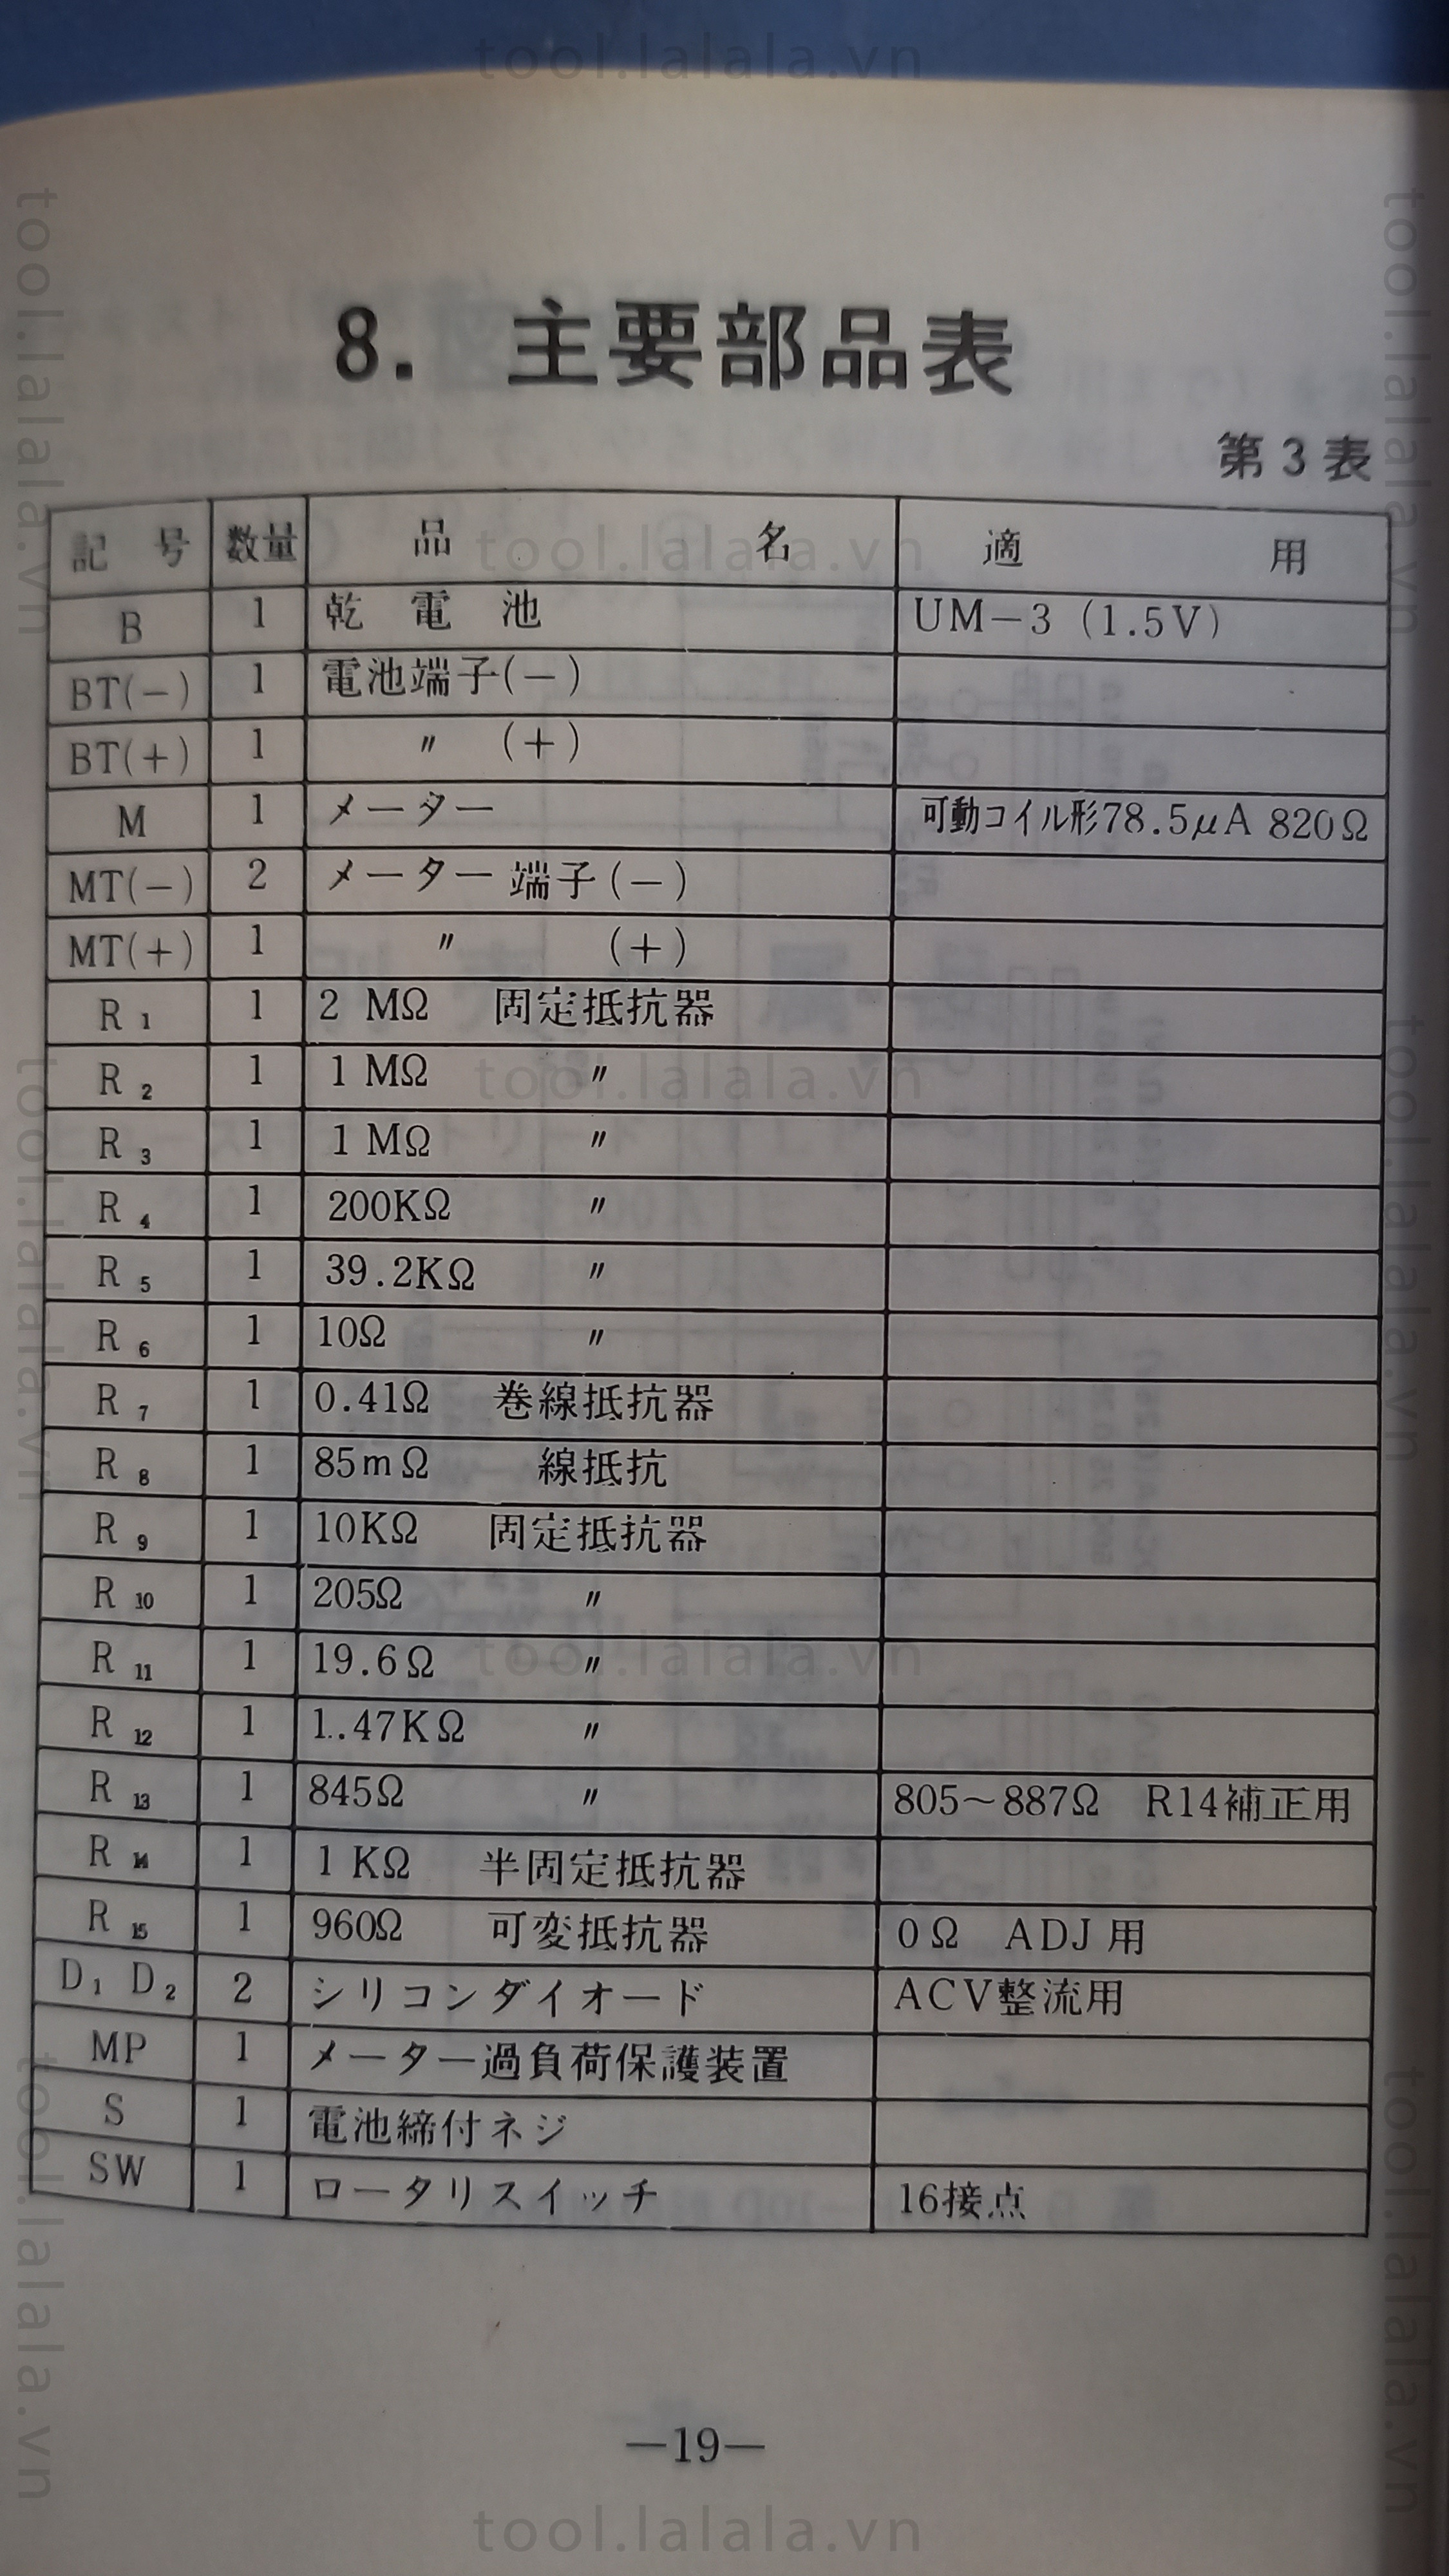 tool.lalala.vn
8. 主要部品表
第3表
記 号 数量 品 名 適 用
B 1 乾 電 池 UM−3 (1.5V)
BT(−) 1 電池端子(−)
BT(+) 1 〃 (+)
M 1 メーター 可動コイル形78.5μA 820Ω
MT(−) 2 メーター 端子(−)
MT(+) 1 〃 (+)
R 1 1 2 MΩ 固定抵抗器
R 2 1 1 MΩ 〃
R 3 1 1 MΩ 〃
R 4 1 200KΩ 〃
R 5 1 39.2KΩ 〃
R 6 1 10Ω 〃
R 7 1 0.41Ω 巻線抵抗器
R 8 1 85mΩ 線抵抗
R 9 1 10KΩ 固定抵抗器
R 10 1 205Ω 〃
R 11 1 19.6Ω 〃
R 12 1 1.47KΩ 〃
R 13 1 845Ω 〃 805~887Ω R14補正用
R 14 1 1 KΩ 半固定抵抗器
R 15 1 960Ω 可変抵抗器 0Ω ADJ用
D1 D2 2 シリコンダイオード ACV整流用
MP 1 メーター過負荷保護装置
S 1 電池締付ネジ
SW 1 ロータリスイッチ 16接点
—19—
tool.lalala.vn
tool.lalala.vn
tool.lalala.vn
tool.lalala.vn
tool.lalala.vn
tool.lalala.vn
tool.lalala.vn
tool.lalala.vn
tool.lalala.vn
tool.lalala.vn